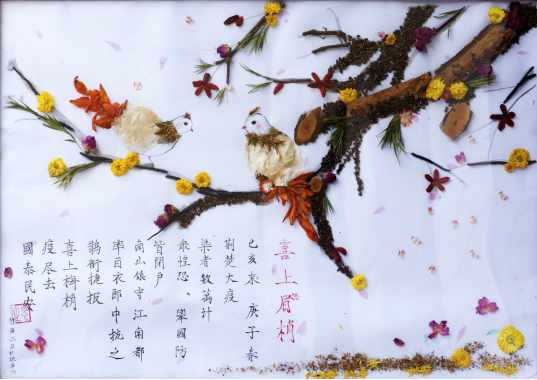 喜上眉梢
己亥末 庚子春
荆楚大疫
染者数萬计
衆惶恐、举國防
皆闭户
南山镇守江南都
率白衣郎中抗之
鹊衔捷报
喜上梅梢
疫尽去
國泰民安